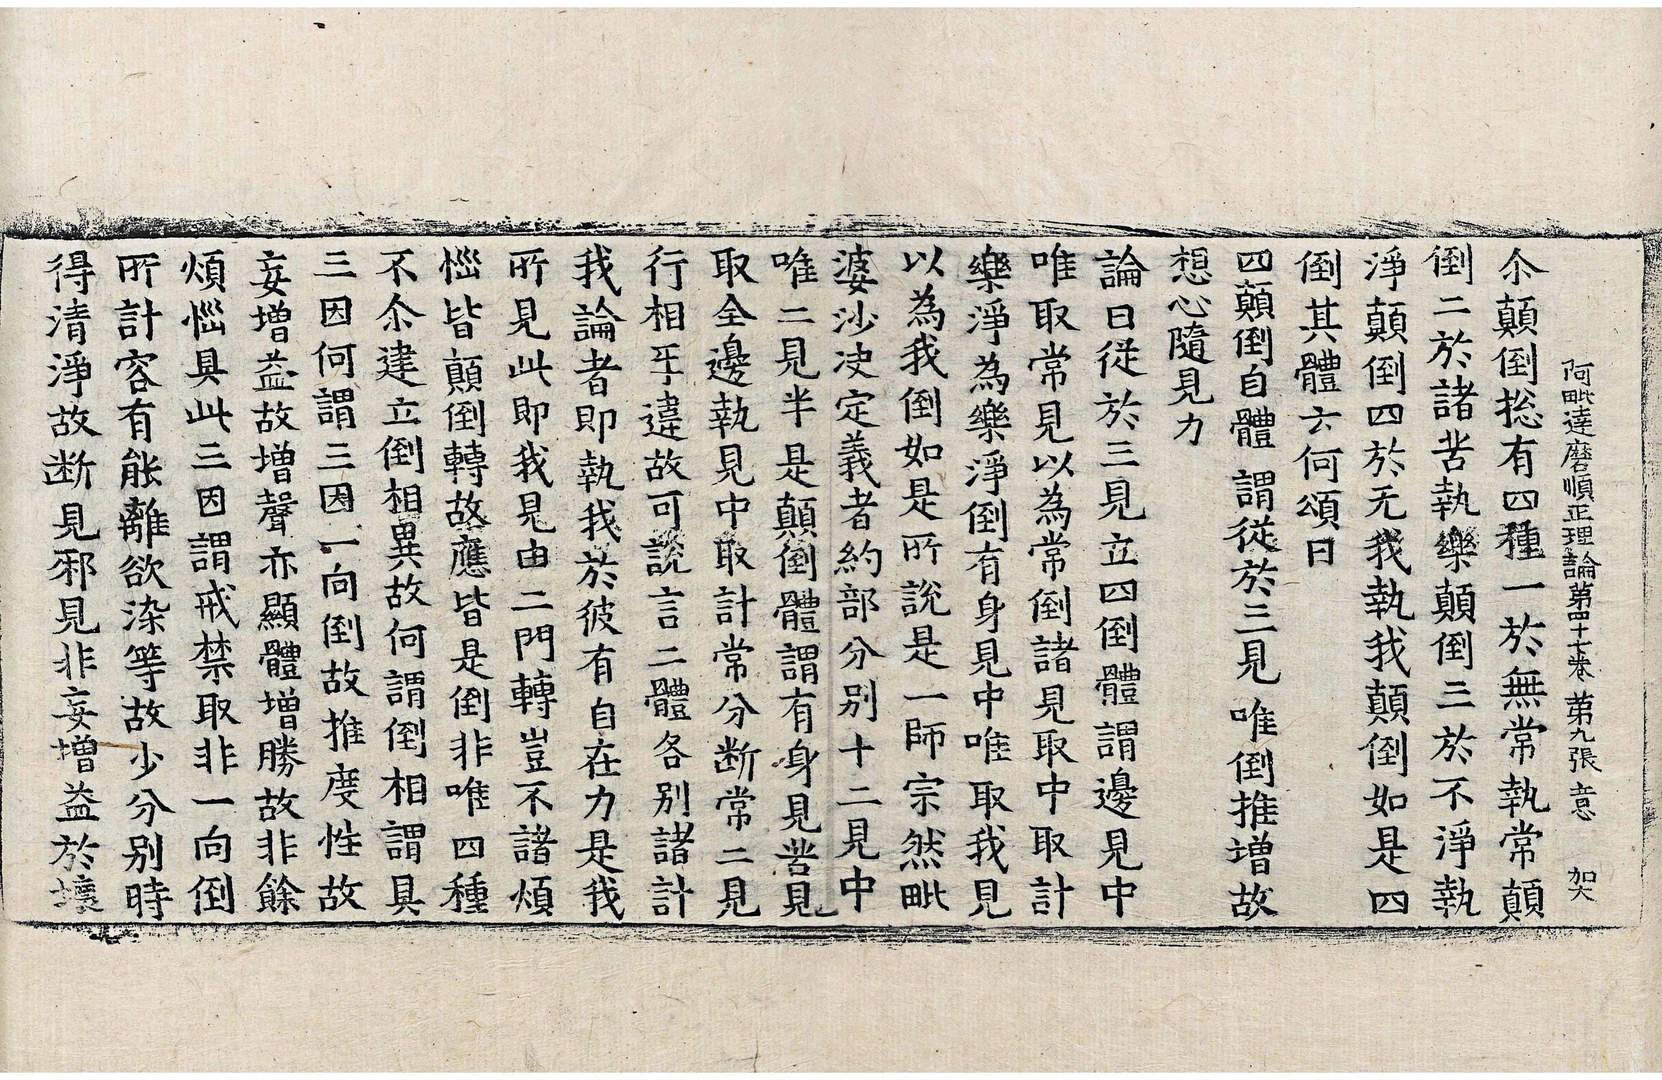 阿毗達磨順正理論第四十七卷 第九張 意 加大
尒顛倒捴有四種一於無常執常顛
倒二於諸苦執樂顛倒三於不淨執
淨顛倒四於无我執我顛倒如是四
倒其體云何頌曰
四顛倒自體 謂從於三見 唯倒推增故
想心隨見力
論曰從於三見立四倒體謂邊見中
唯取常見以為常倒諸見取中取計
樂淨為樂淨倒有身見中唯取我見
以為我倒如是所說是一師宗然毗
婆沙决定義者約部分别十二見中
唯二見半是顛倒體謂有身見苦見
取全邊執見中取計常分断常二見
行相乎違故可說言二體各别諸計
我論者即執我於彼有自在力是我
所見此即我見由二門轉豈不諸煩
惱皆顛倒轉故應皆是倒非唯四種
不尒建立倒相異故何謂倒相謂具
三因何謂三因一向倒故推度性故
妄增益故增聲亦顯體增勝故非餘
煩惱具此三因謂戒禁取非一向倒
所計容有能離欲染等故少分别時
得清淨故断見邪見非妄增益於壞